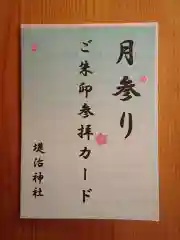 月参り
ご朱印参拝カード
堤治神社